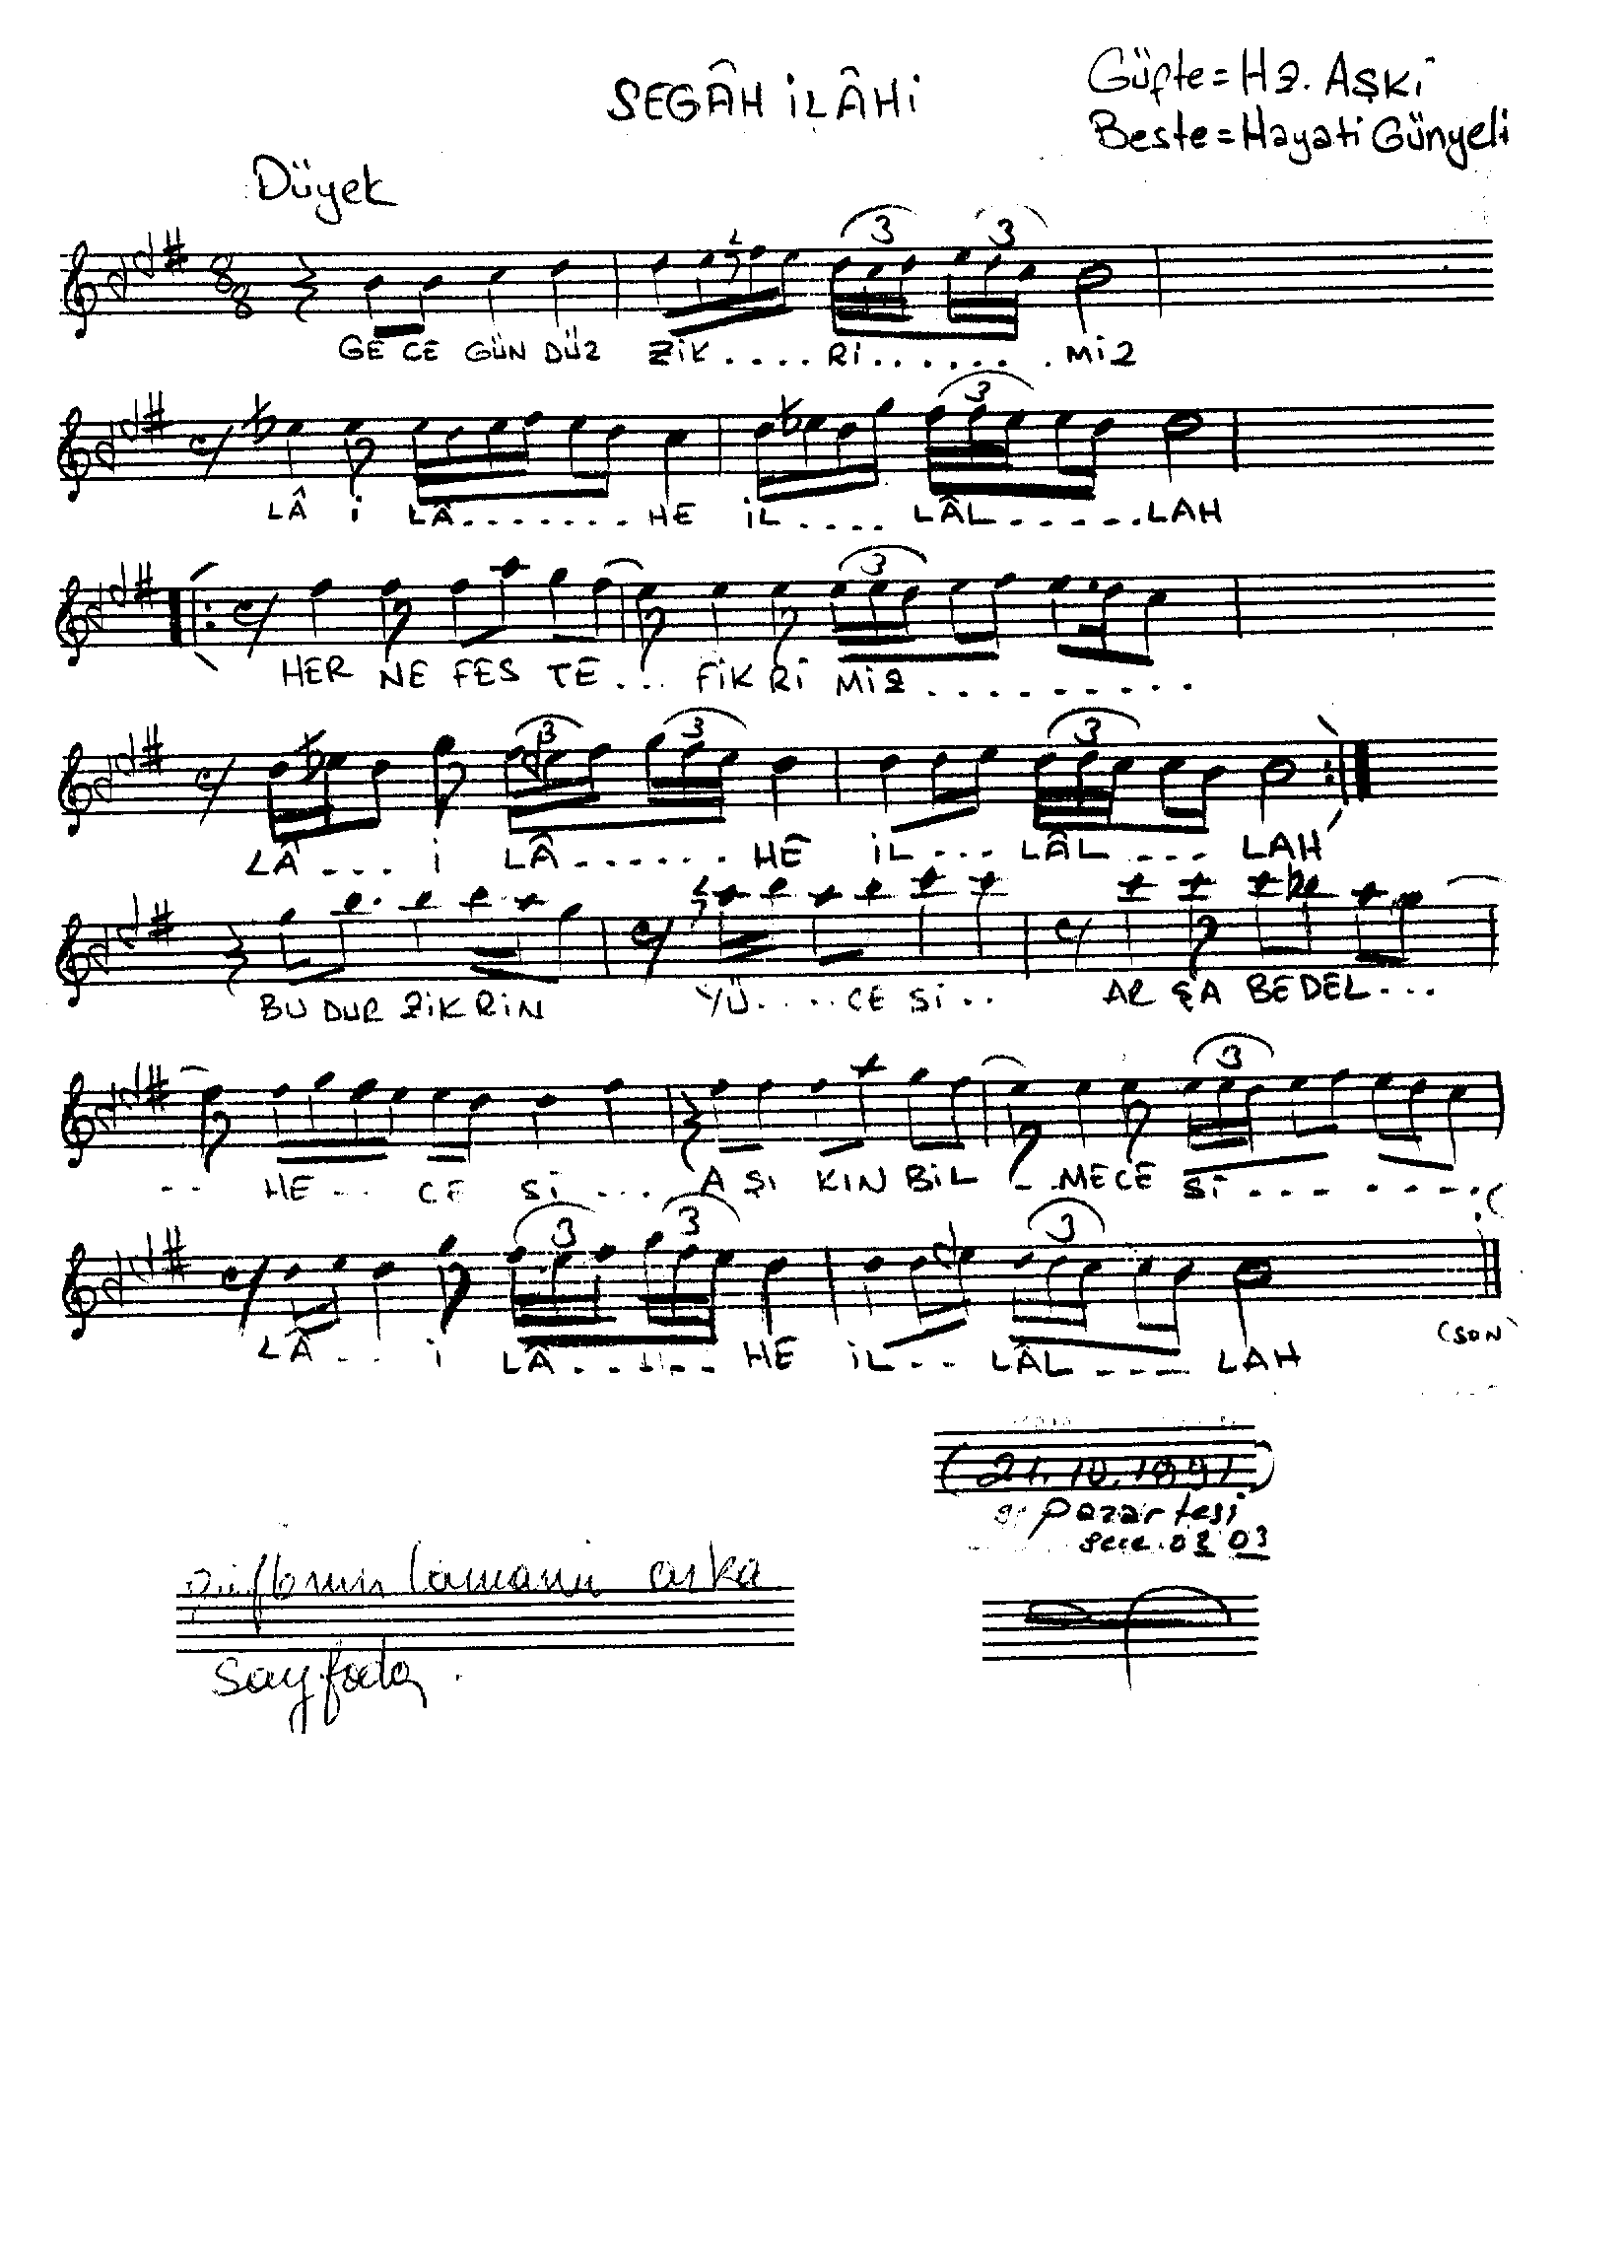 SEGÂH İLÂHİ
Güfte=Hz. AŞKİ
Beste=Hayati Günyeli
Düyek
8
8
3 3
GE CE GÜN DÜZ ZİK.... Rİ....... MİZ
3
LÂ İ LÂ....... HE İL.... LÂL......LAH
3
HER NE FES TE... FİK Rİ MİZ..........
3 3 3
LÂ.... İ LÂ...... HE İL... LÂL.... LAH
BU DUR ZİK RİN YÜ.....CE Sİ.. AR ŞA BE DEL...
3
-- HE--.. CE Sİ... A ŞI KIN BİL -.MECE Sİ.........
3 3 3
LÂ... İ LÂ...... HE İL... LÂL.... LAH
(SON)
(21.10.1991)
Pazartesi
gece.
Güftenin tamamı arka
Sayfada.